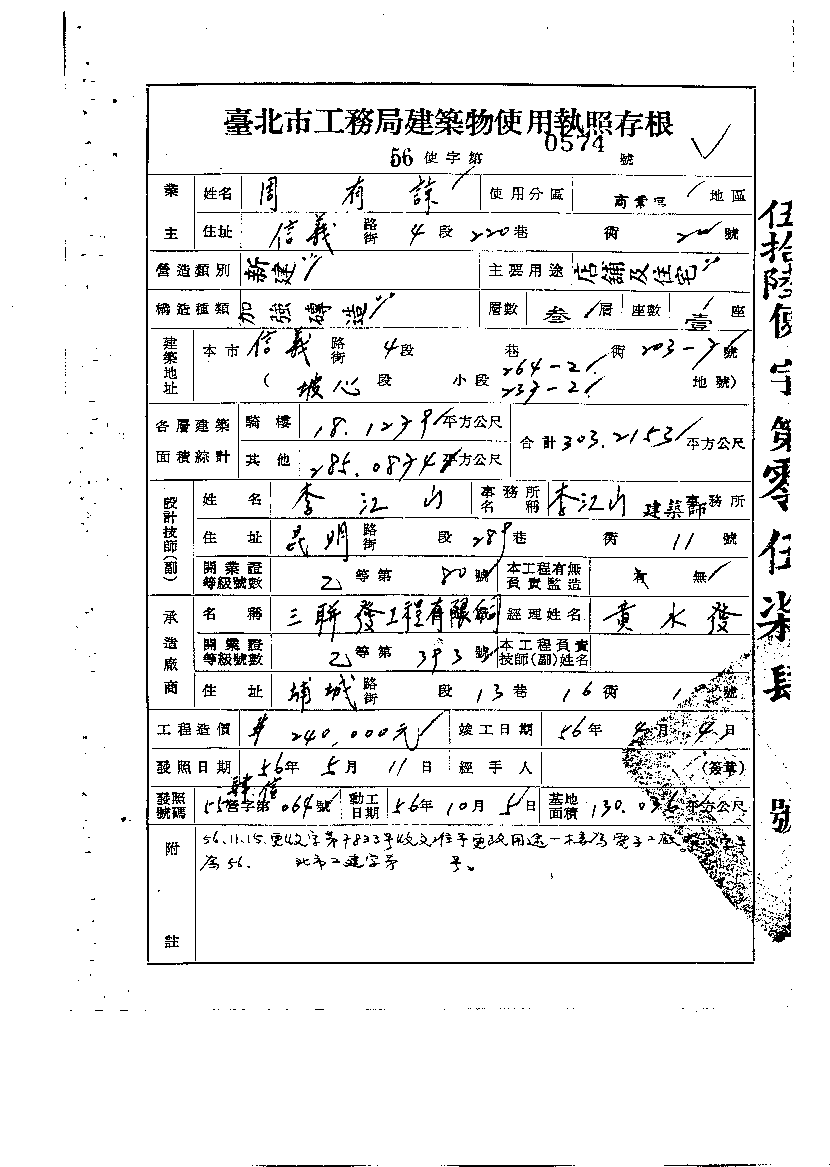 臺北市工務局建築物使用執照存根
56 使字第 0574 號
業主 姓名 周有諒 使用分區 商業區 地區
住址 信義 路街 4 段 220 巷 衖 號
營造類別 新建 主要用途 店舖及住宅
構造種類 加強磚造 層數 叁 層 座數 壹 座
建築地址 本市 信義 路街 4 段 巷 衖 203-7 號
( 坡心 段 小段 264-2 237-2 地號)
各層建築面積綜計 騎樓 18.1279 平方公尺 合計 303.2153 平方公尺
其他 285.0874 平方公尺
設計技師(副) 姓名 李江山 事務所名稱 李江山 建築師事務所
住址 昆明 路街 段 289 巷 衖 11 號
開業證等級號數 乙 等第 80 號 本工程有無負責監造 有 無
承造廠商 名稱 三聯發工程有限公司 經理姓名 黃水發
開業證等級號數 乙 等第 393 號 本工程負責技師(副)姓名
住址 埔城 路街 段 13 巷 16 衖 1 號
工程造價 240,000元 竣工日期 56 年 4 月 4 日
發照日期 56 年 5 月 11 日 經手人 (簽章)
發照號碼 55 營字第 064 號 動工日期 56 年 10 月 5 日 基地面積 130.036 平方公尺
附註 56.11.15.更收文字第7833號收文准予更改用途一樓為電子工廠
為56. 北市工建字第 號。
伍拾陸使字第零伍柒肆號